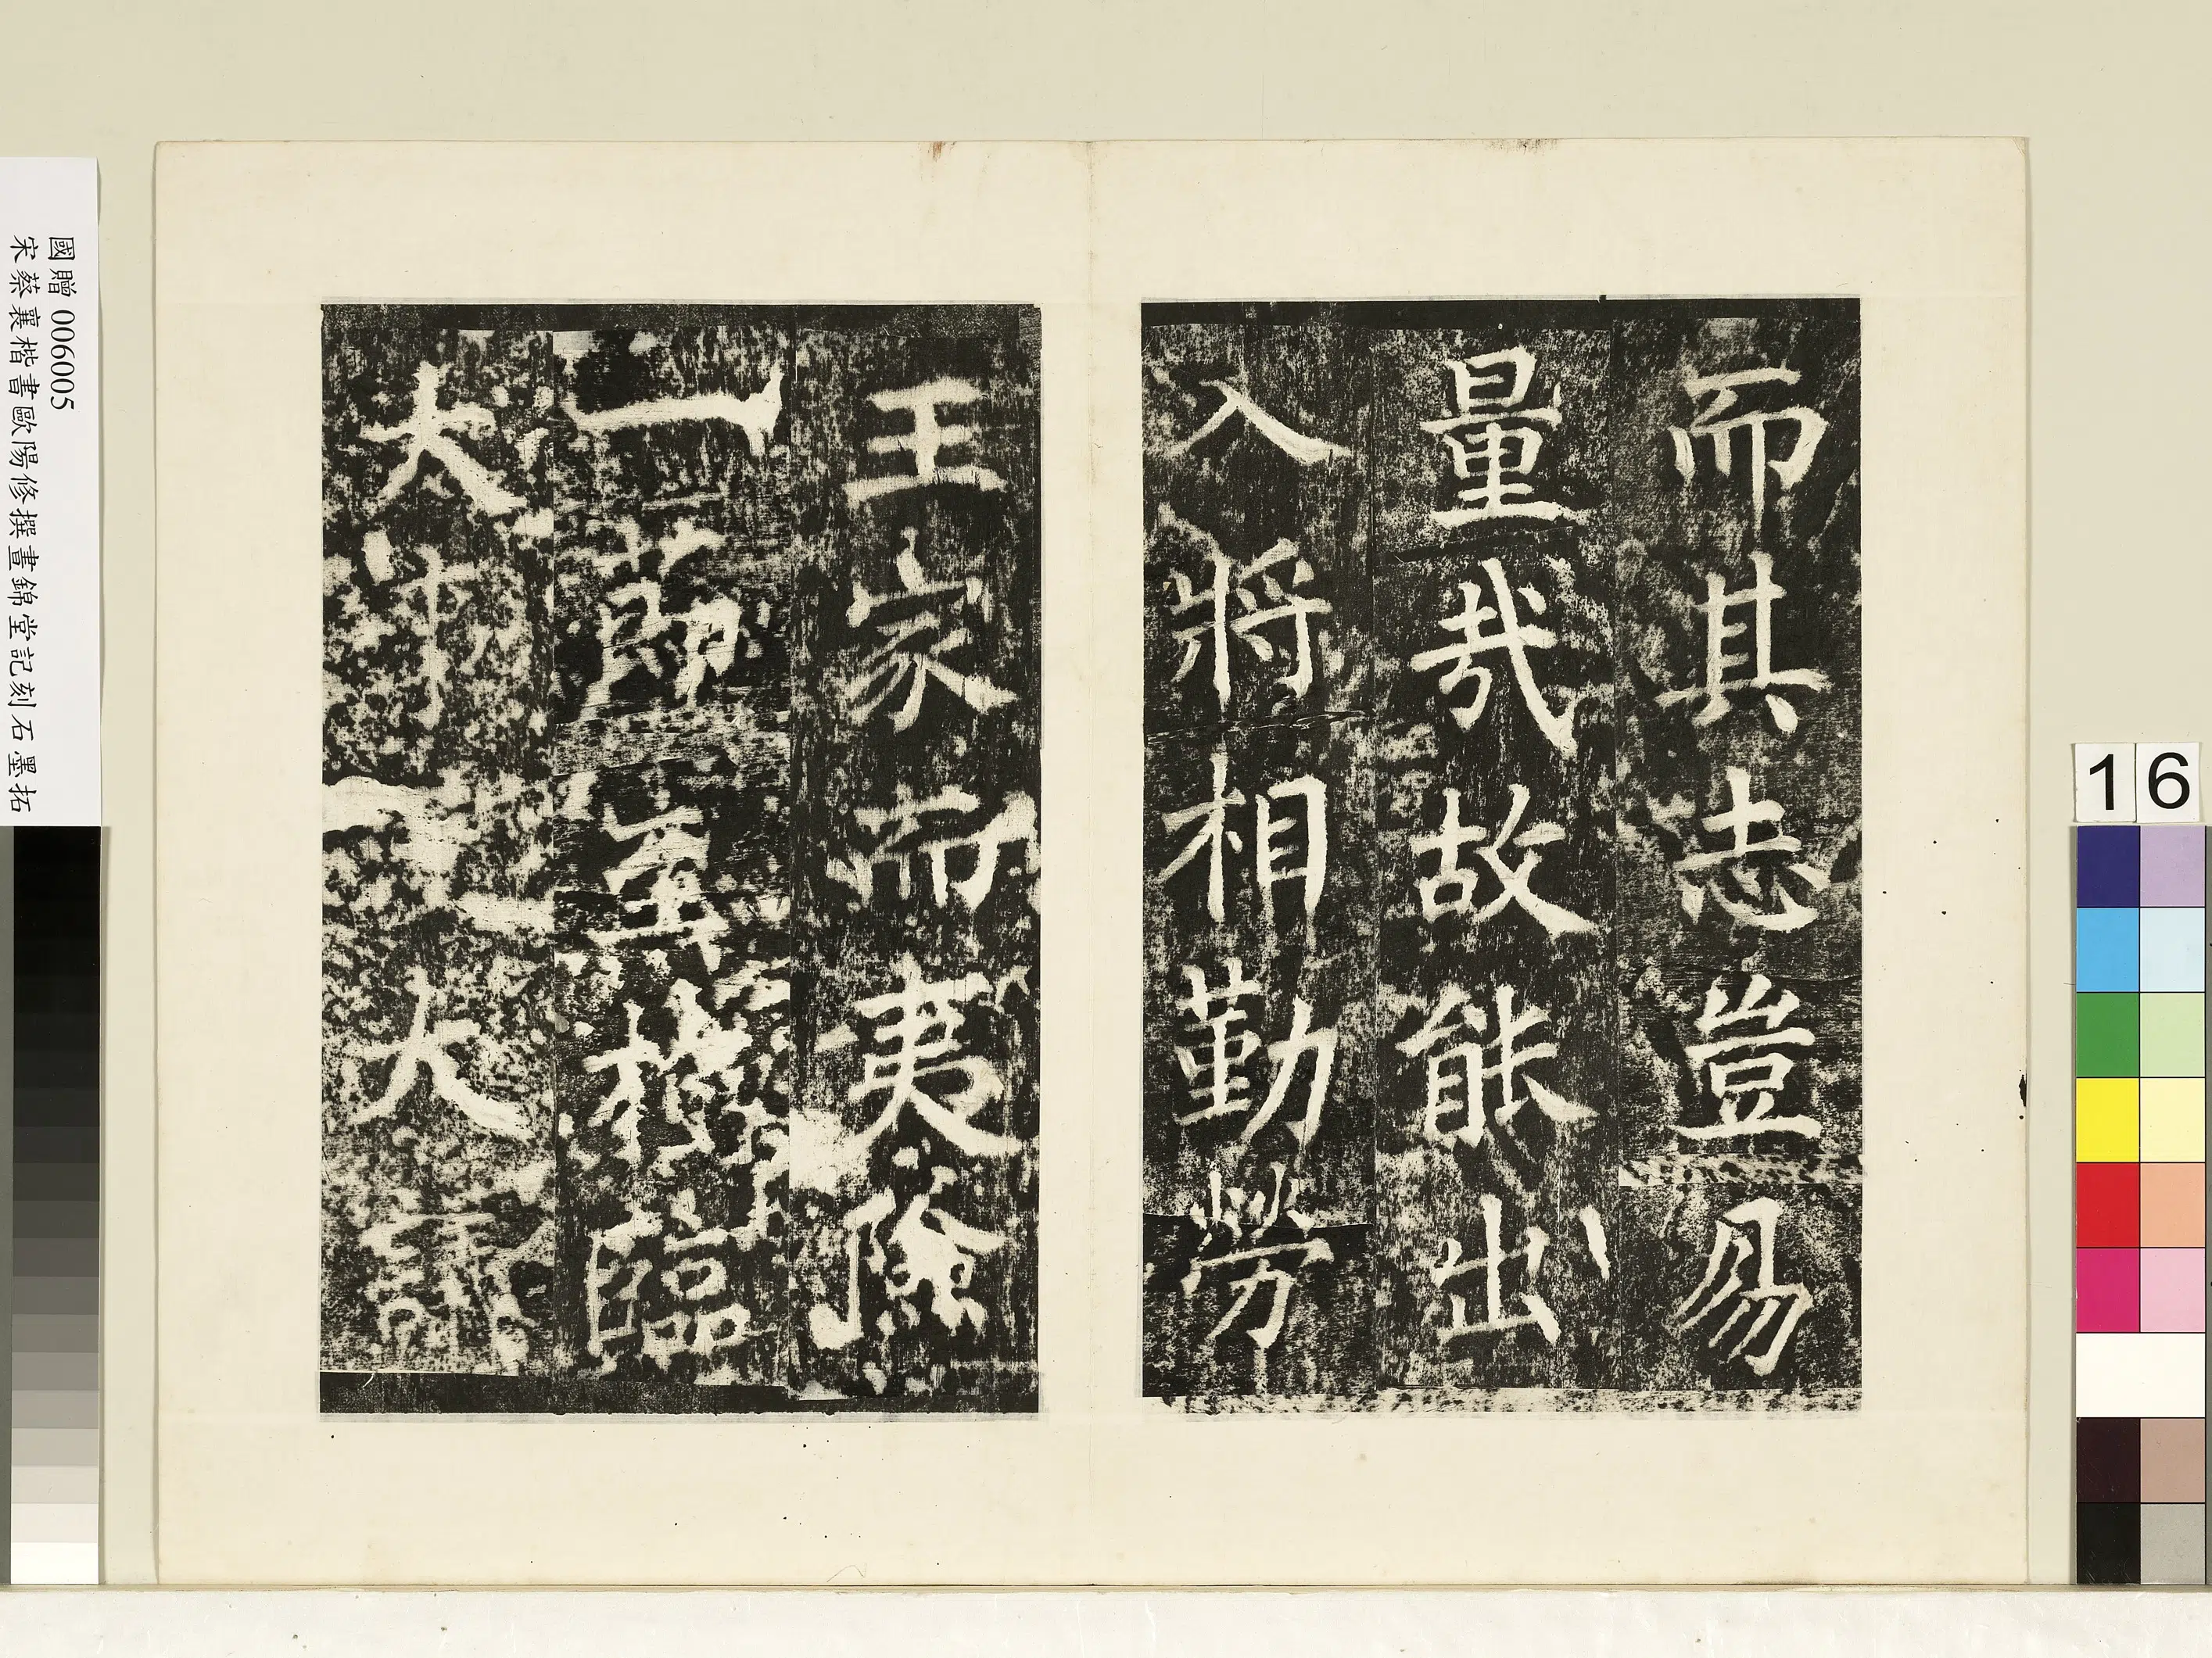 而其志豈易
量哉故能出
入將相勤勞
王家而夷險
一節至於臨
大事大議
國贈 006005
宋蔡襄楷書歐陽修撰晝錦堂記刻石墨拓
16